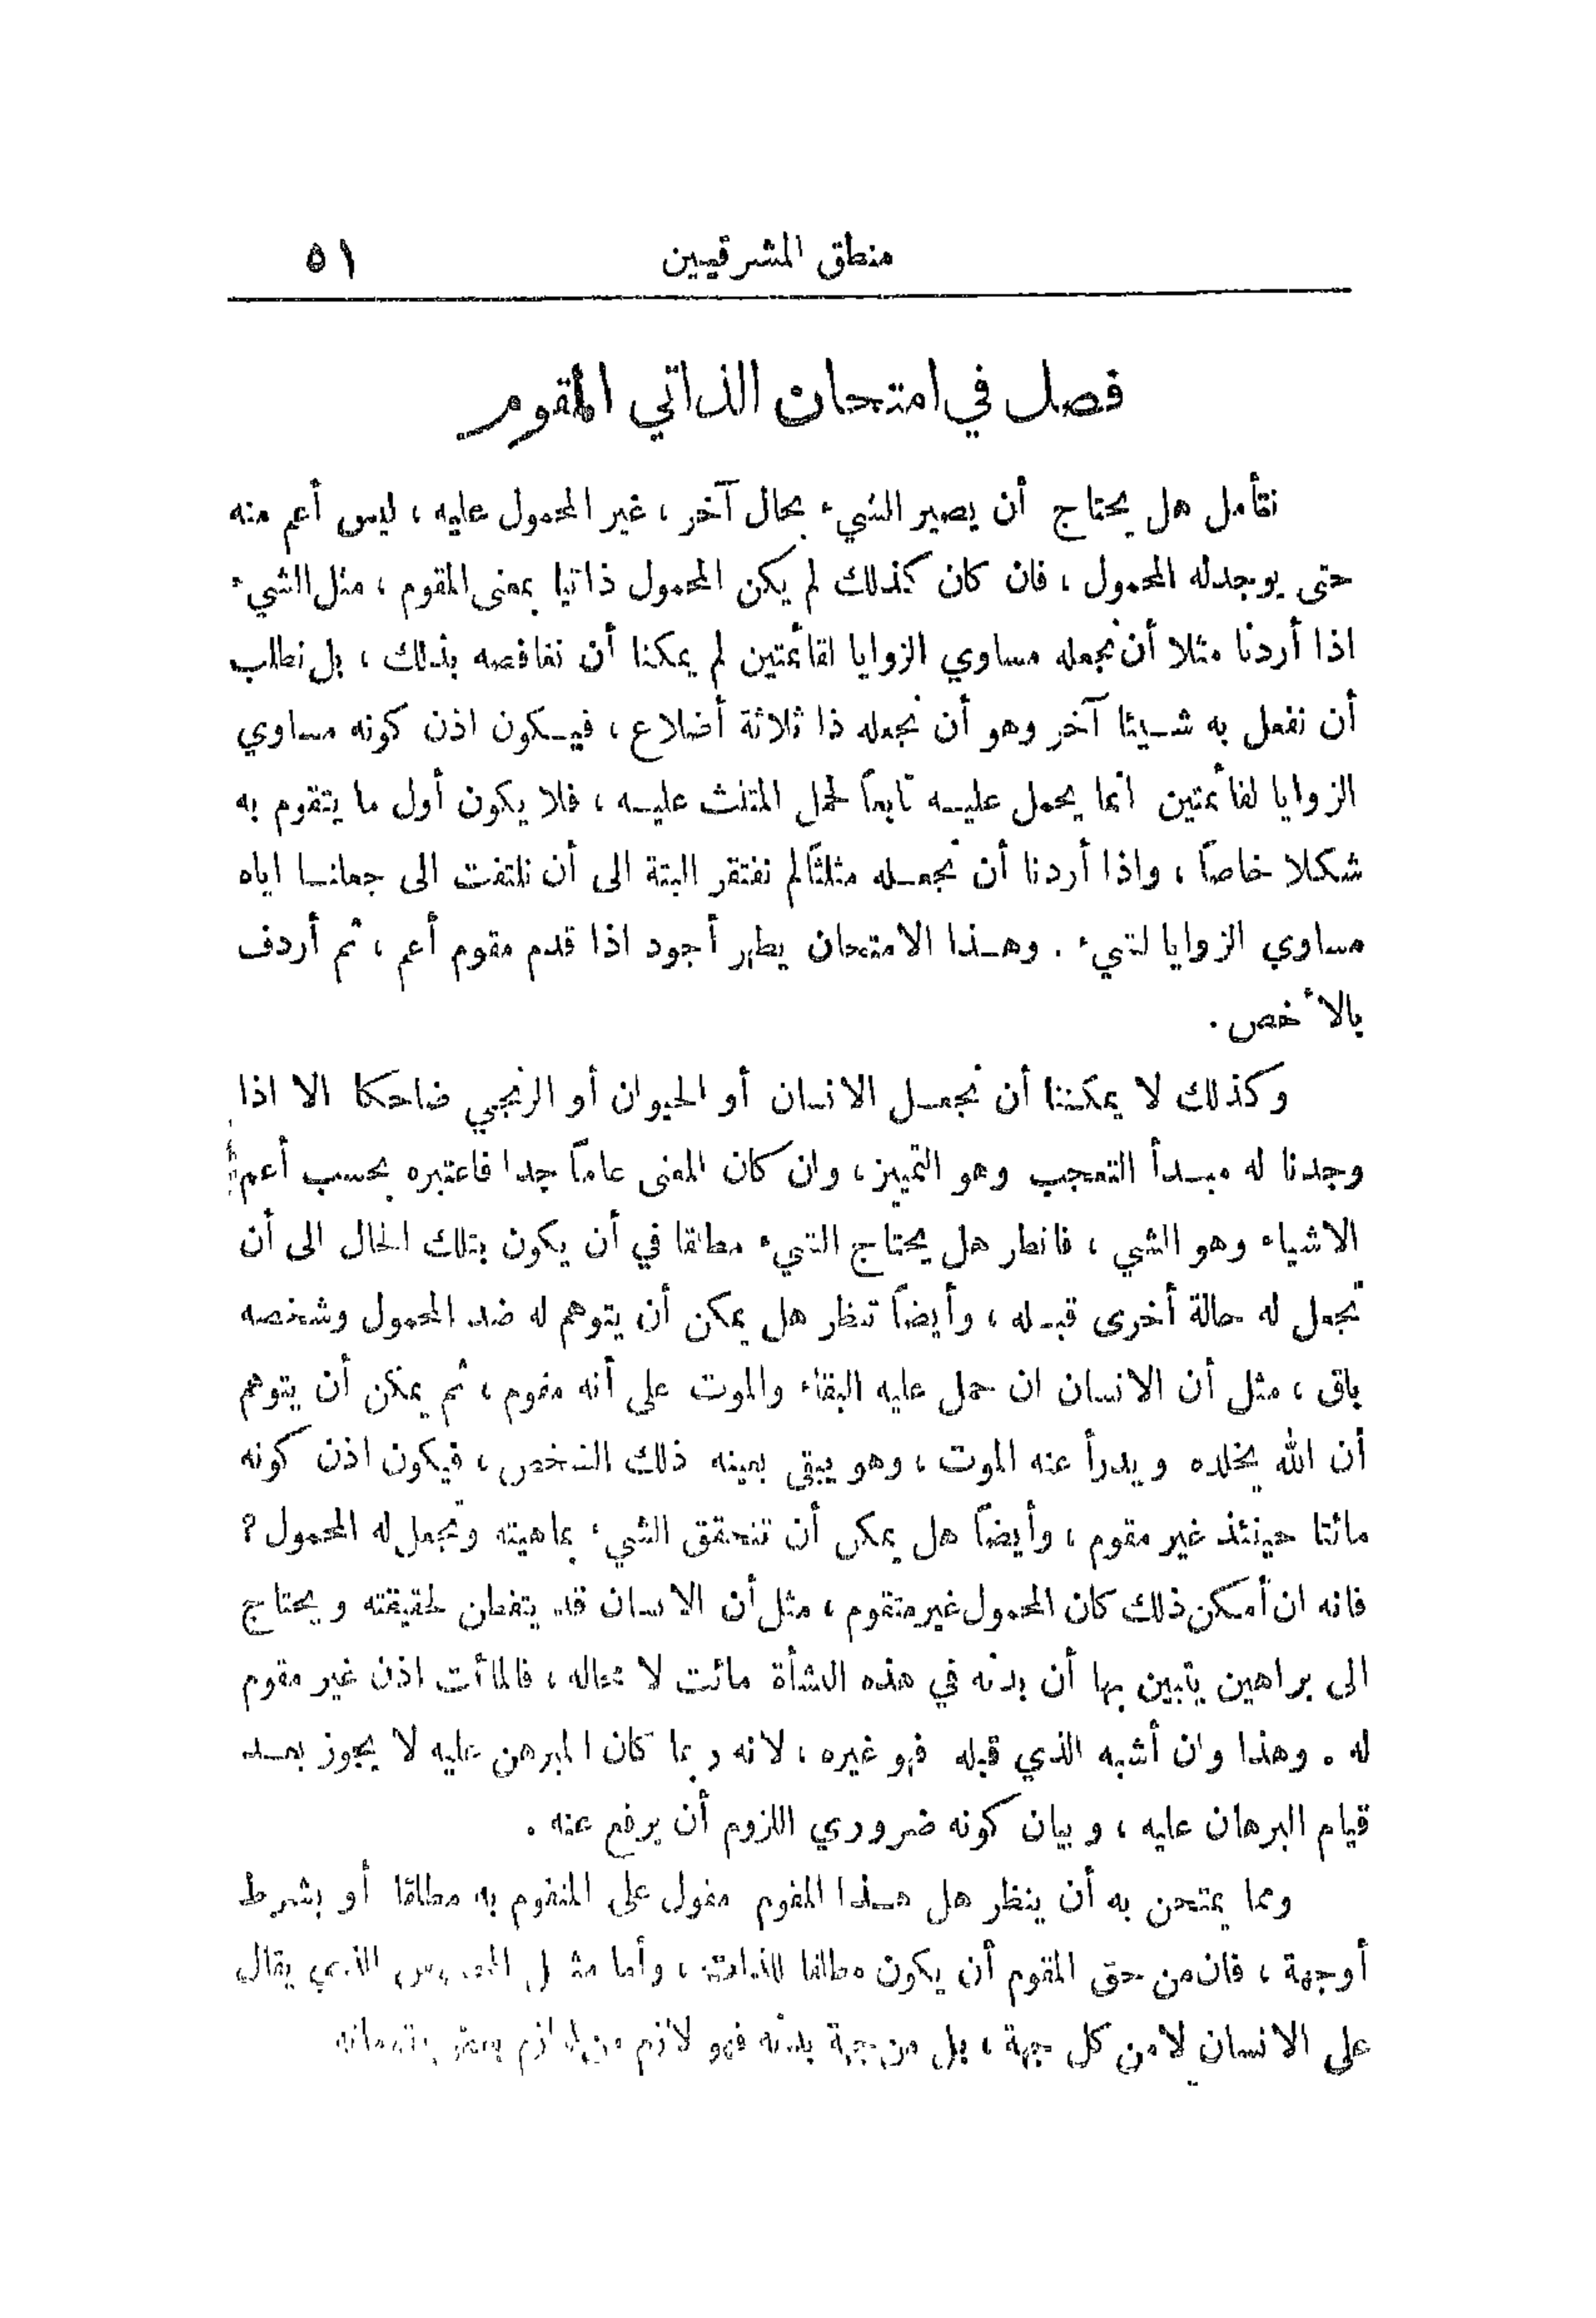 منطق المشرقيين ٥١
فصل في امتحان الذاتي المقوم
نتأمل هل يحتاج أن يصير الشيء بحال آخر ، غير المحمول عليه ، ليس أعم منه
حتى يوجد له المحمول ، فان كان كذلك لم يكن المحمول ذاتيا بمعنى المقوم ، مثل الشيء
اذا أردنا مثلا أن نجعله مساوي الزوايا لقائمتين لم يمكنا أن نغافصه بذلك ، بل نطلب
أن نفعل به شيئا آخر وهو أن نجعله ذا ثلاثة أضلاع ، فيكون اذن كونه مساوي
الزوايا لقائمتين انما يحمل عليه تابعاً لحمل المثلث عليه ، فلا يكون أول ما يتقوم به
شكلا خاصاً ، واذا أردنا أن نجعله مثلثاً لم نفتقر البتة الى أن نلتفت الى جعلنا اياه
مساوي الزوايا لشيء . وهذا الامتحان يظهر أجود اذا قدم مقوم أعم ، ثم أردف
بالأخص .
وكذلك لا يمكننا أن نجعل الانسان أو الحيوان أو الزنجي ضاحكا الا اذا
وجدنا له مبدأ التعجب وهو التمييز ، وان كان المعنى عاماً جدا فاعتبره بحسب أعم
الاشياء وهو الشي ، فانظر هل يحتاج الشيء مطلقا في أن يكون بتلك الحال الى أن
تجعل له حالة أخرى قبله ، وأيضاً تنظر هل يمكن أن يتوهم له ضد المحمول وشخصه
باق ، مثل أن الانسان ان حمل عليه البقاء والموت على أنه مقوم ، ثم يمكن أن يتوهم
أن الله يخلده ويدرأ عنه الموت ، وهو يبقى بعينه ذلك الشخص ، فيكون اذن كونه
مائتا حينئذ غير مقوم ، وأيضاً هل يمكن أن تتحقق الشيء بماهيته وتجعل له المحمول ؟
فانه ان أمكن ذلك كان المحمول غير متقوم ، مثل أن الانسان قد يتفطن لحقيقته ويحتاج
الى براهين يتبين بها أن بدنه في هذه النشأة مائت لا محاله ، فالمائت اذن غير مقوم
له . وهذا وان أشبه الذي قبله فهو غيره ، لانه ربما كان المبرهن عليه لا يجوز بعد
قيام البرهان عليه ، وبيان كونه ضروري اللزوم أن يرفع عنه .
ومما يمتحن به أن ينظر هل هذا المقوم مقول على المتقوم به مطلقا أو بشرط
أو جهة ، فان من حق المقوم أن يكون مطلقا ، وأما مثل الذي يقال
على الانسان لا من كل جهة ، بل من جهة بدنه فهو لازم من